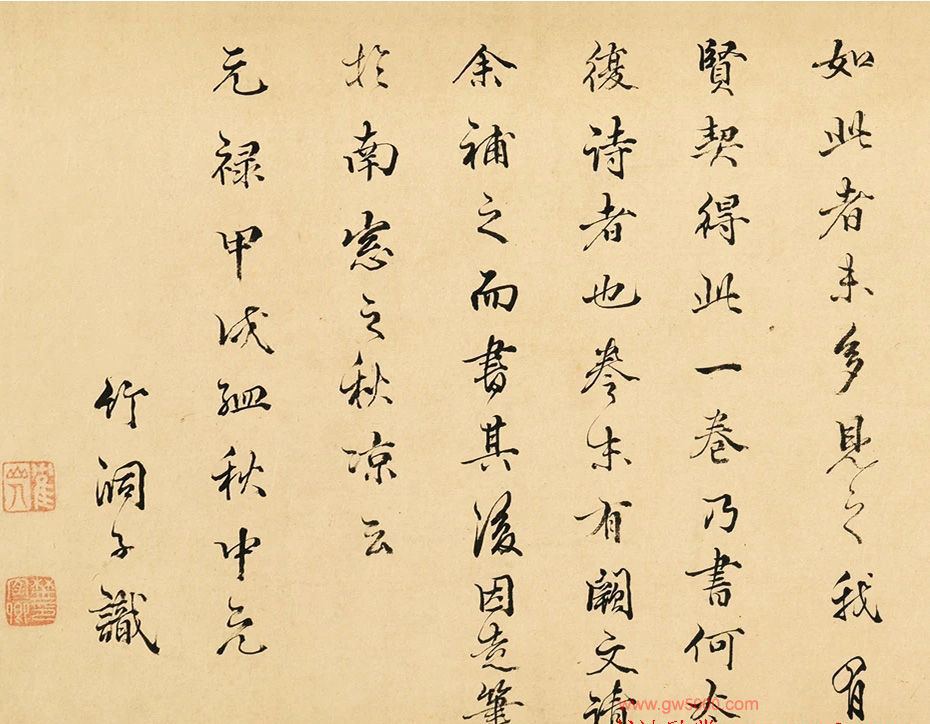 如此者未多見之我有
賢契得此一巻乃書何
復诗者也巻末有闕文請
余補之而書其後因走筆
於南窓之秋凉云
元禄甲戌孟秋中元
竹洞子識
www.gw5000.com